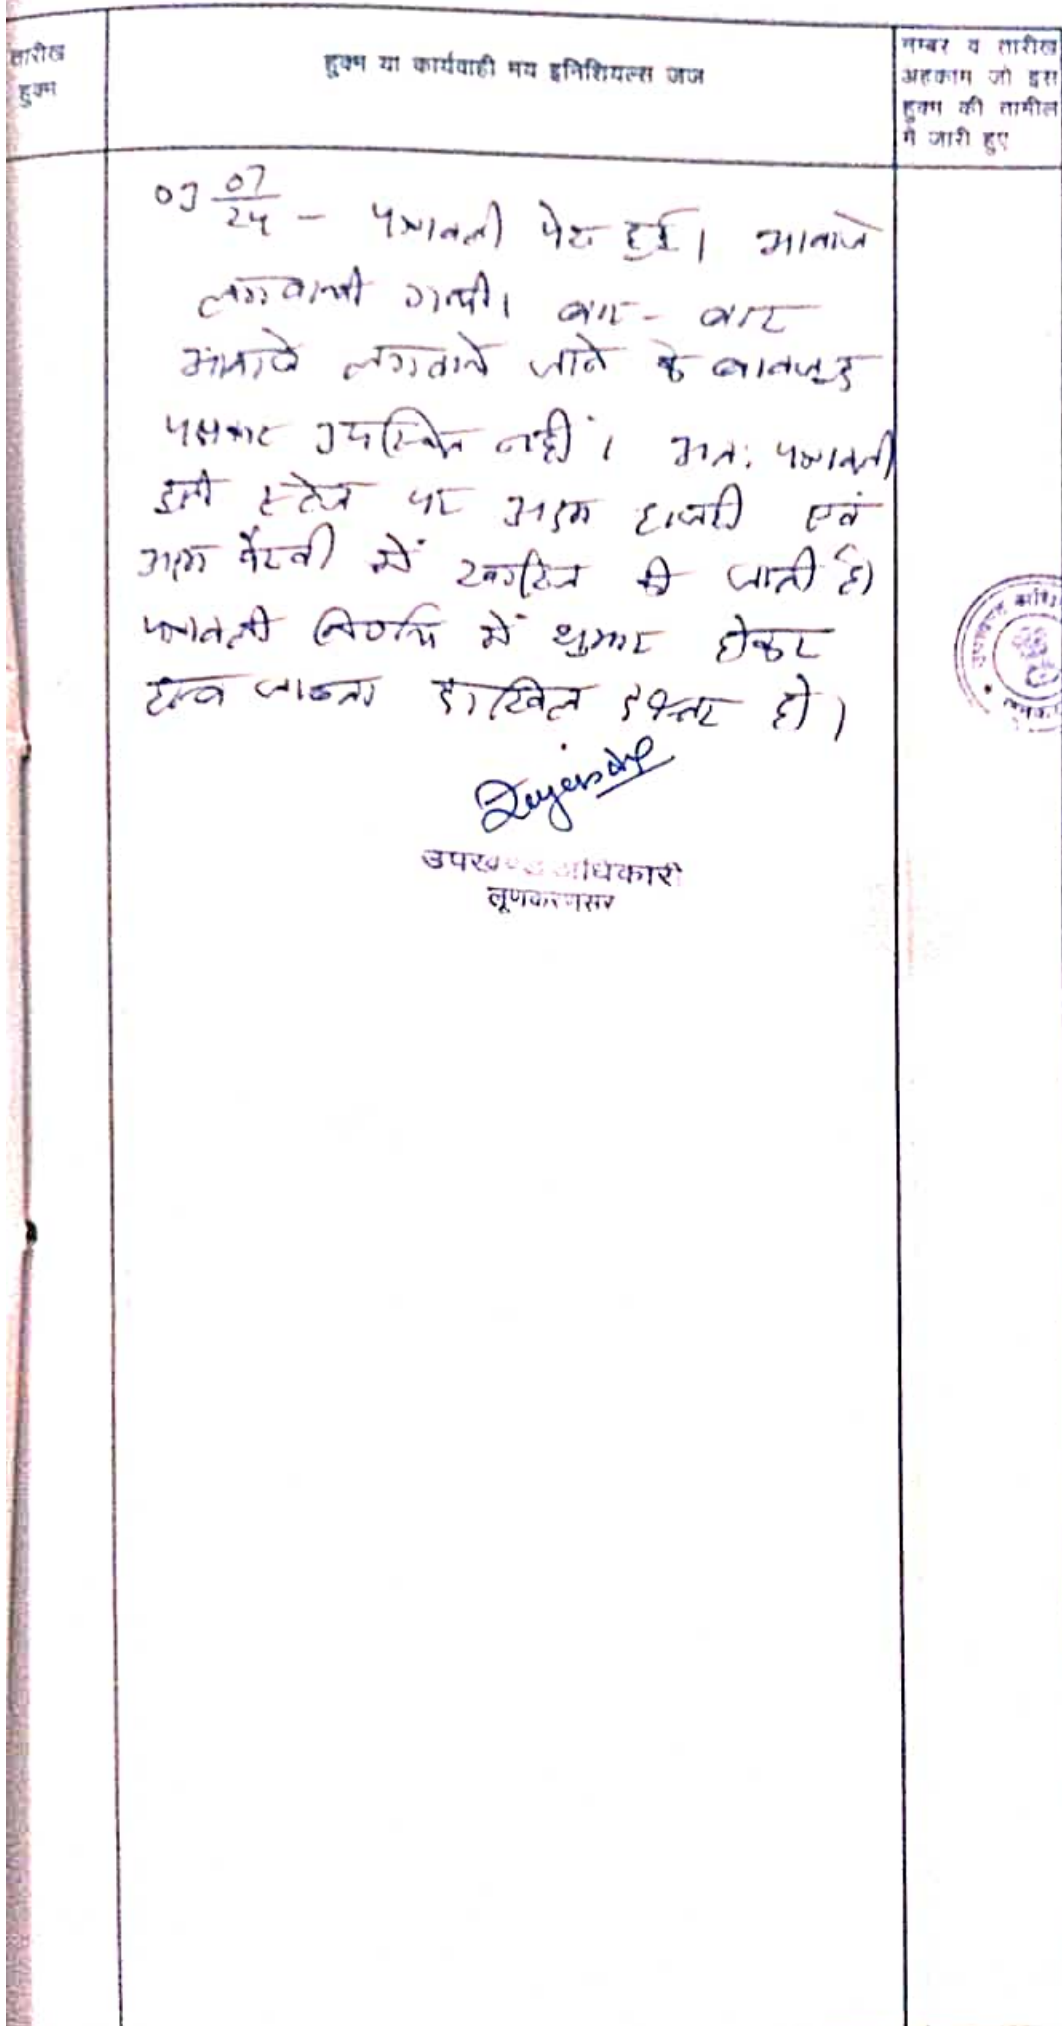 तारीख
हुक्म
हुक्म या कार्यवाही मय इनिशियल्स जज
नम्बर व तारीख
अहकाम जो इस
हुक्म की तामील
में जारी हुए
07
24 - पत्रावली पेश हुई। आवाजे
लगवायी गयी। बार-बार
आवाजे लगवाने जाने के बावजूद
पक्षकार उपस्थित नहीं। अतः पत्रावली
इसी स्टेज पर अदम हाजरी एवं
अदम पैरवी में खारिज की जाती है।
पत्रावली निर्णित में शुमार होकर
जाब्ता दाखिल दफ्तर हो।
उपखण्ड अधिकारी
लूणकरणसर